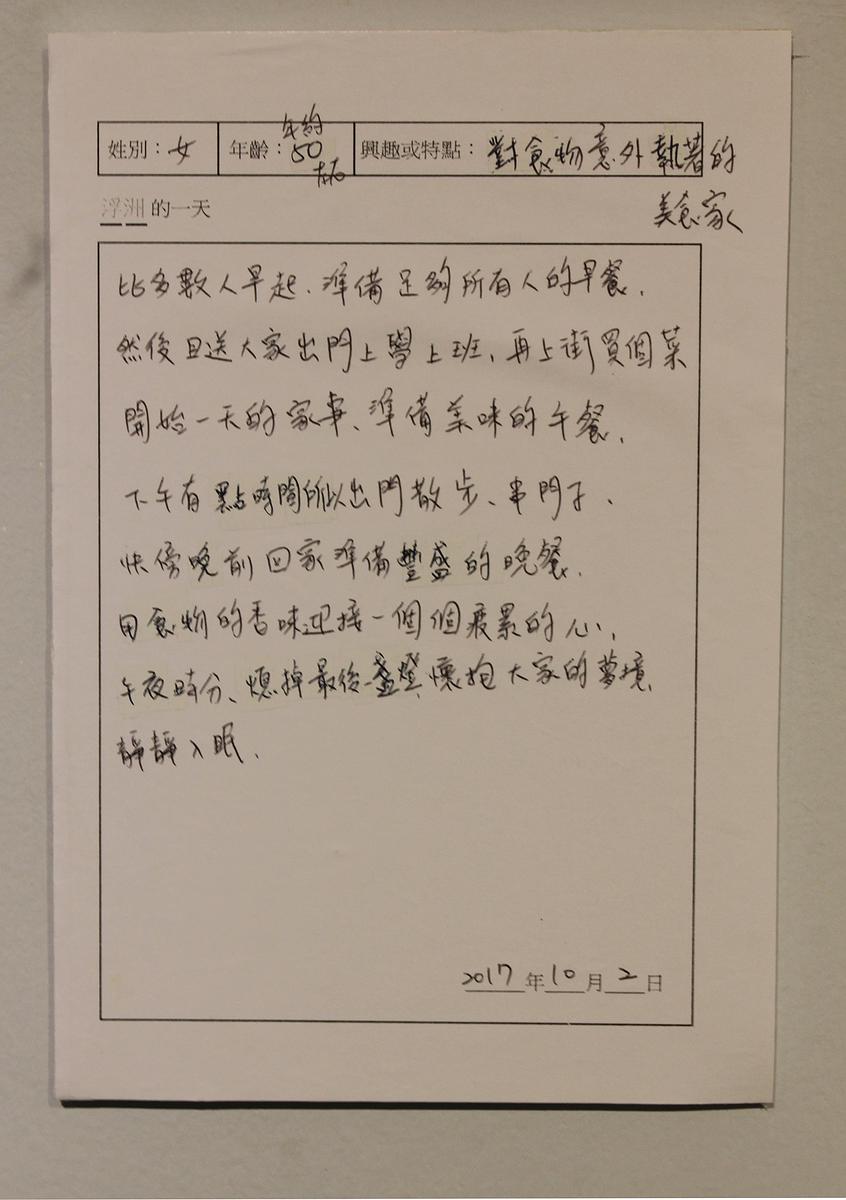 姓別：女 年齡：年約50左右 興趣或特點：對食物意外執著的
美食家
浮洲的一天
比多數人早起、準備足夠所有人的早餐、
然後目送大家出門上學上班、再上街買個菜
開始一天的家事、準備美味的午餐、
下午有點時間所以出門散步、串門子、
快傍晚前回家準備豐盛的晚餐、
用食物的香味迎接一個個疲累的心、
午夜時分、熄掉最後一盞燈、懷抱大家的夢境、
靜靜入眠、
2017年10月2日